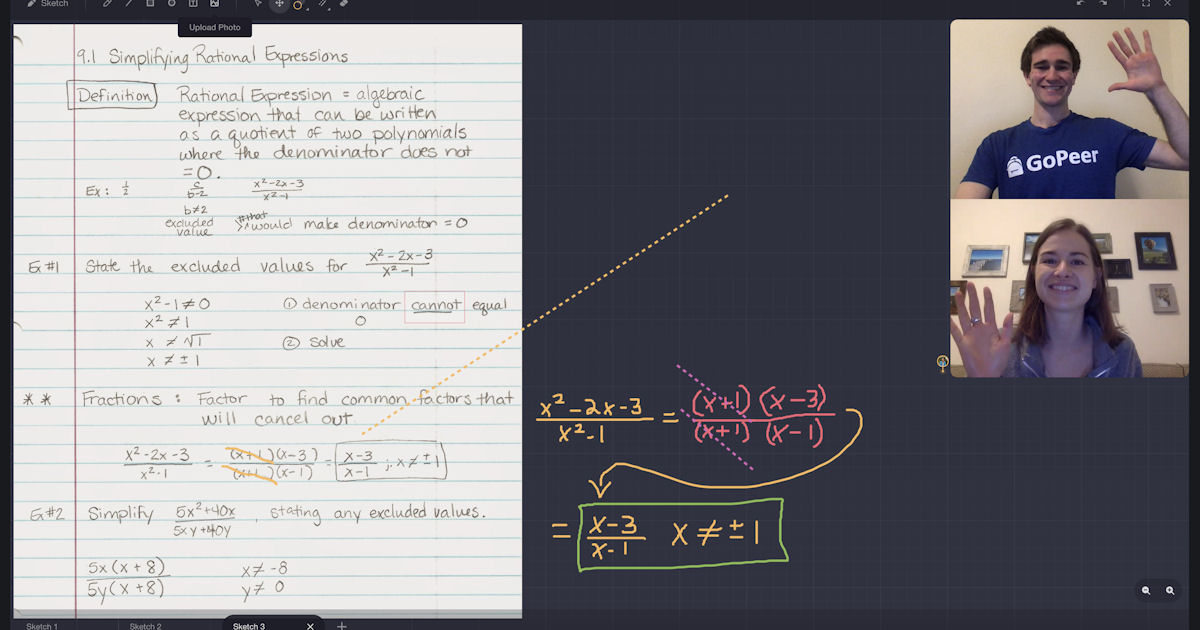 Sketch
Upload Photo
9.1 Simplifying Rational Expressions
Definition Rational Expression = algebraic
expression that can be written
as a quotient of two polynomials
where the denominator does not
= 0.
Ex: 1/2 c/b-2 x²-2x-3/x²-1
b≠2
excluded value
#that would make denominator = 0
Ex #1 State the excluded values for x²-2x-3/x²-1
x²-1≠0 ① denominator cannot equal
x² ≠ 1 0
x ≠ √1 ② Solve
x ≠ ±1
** Fractions: Factor to find common factors that
will cancel out.
x²-2x-3/x²-1 = (x+1)(x-3)/(x+1)(x-1) = x-3/x-1 ; x≠±1
Ex #2 Simplify 5x²+40x/5xy+40y, stating any excluded values.
5x(x+8) x≠-8
5y(x+8) y≠0
x²-2x-3/x²-1 = (x+1)(x-3)/(x+1)(x-1)
= x-3/x-1 x≠±1
GoPeer
Sketch 1 Sketch 2 Sketch 3